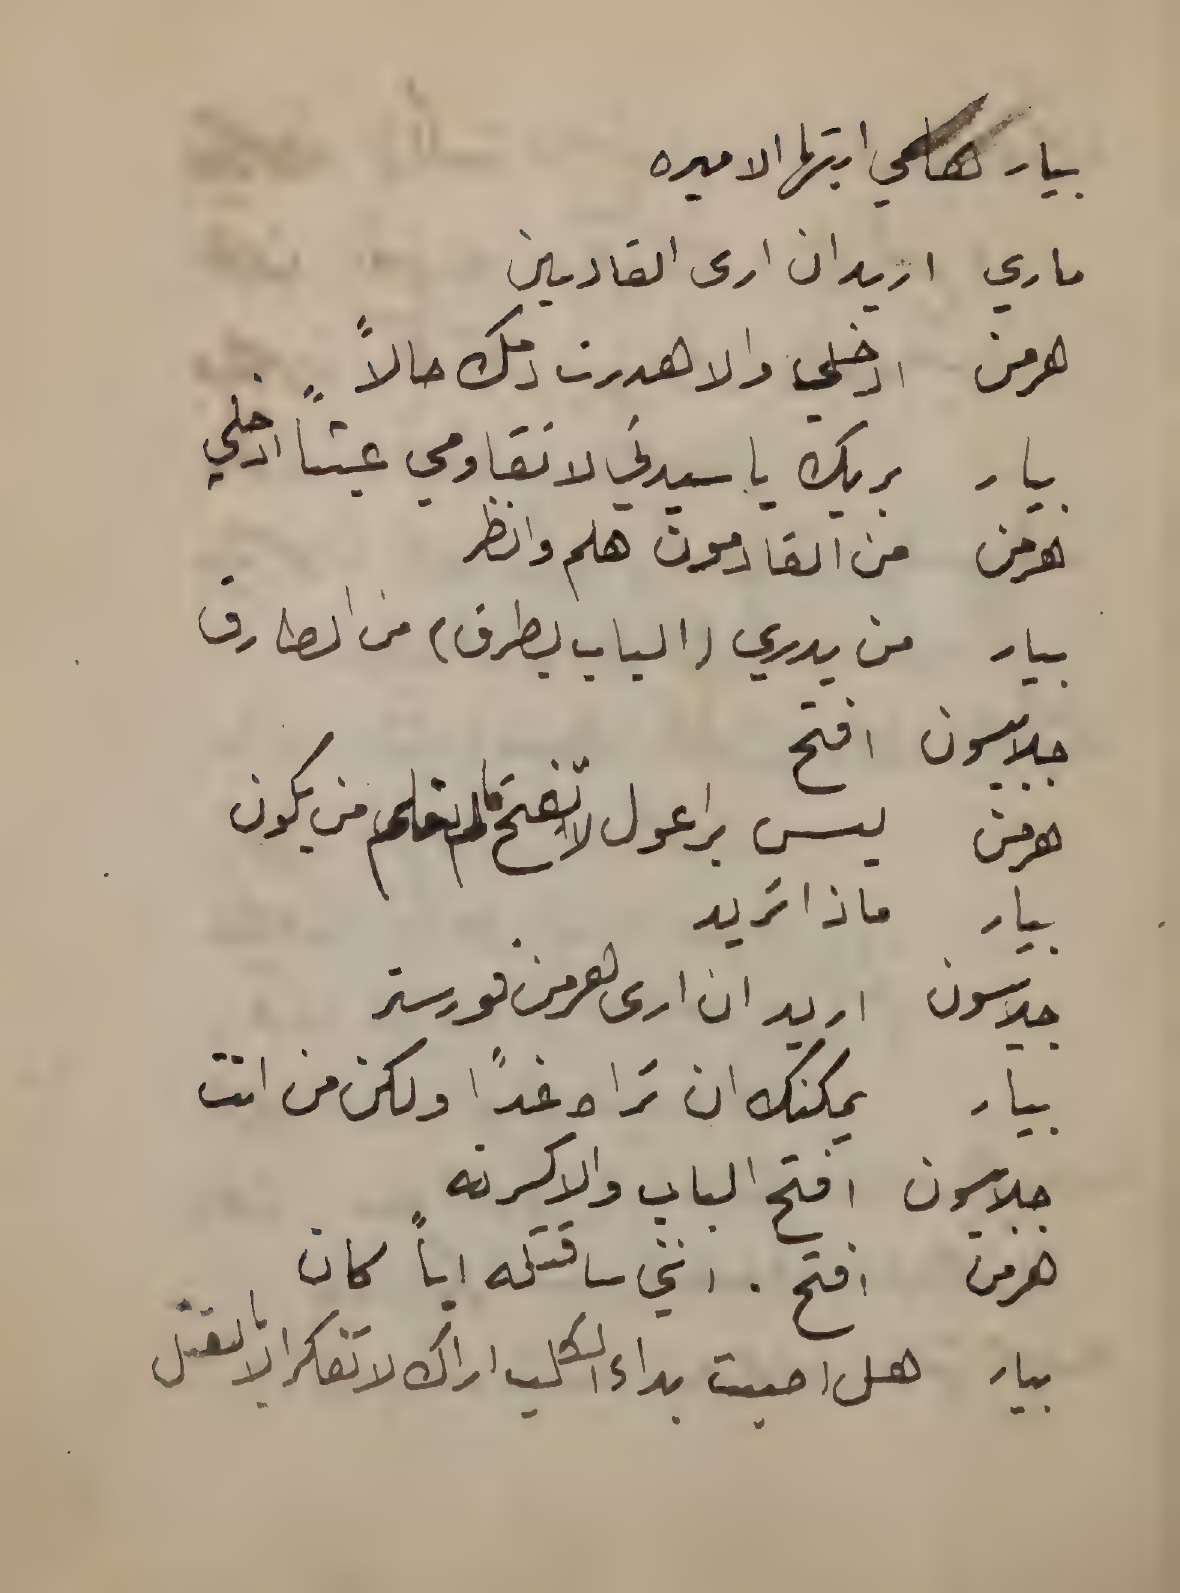 بيار هلمي ايتها الاميره
ماري اريد ان ارى القادمين
هرمن ادخلي والا هدرت دمك حالاً
بيار بربك يا سيدتي لا تقاومي عبثاً ادخلي
هرمن من القادمون هلم وانظر
بيار من يدري (الباب يطرق) من الطارق
جلاسون افتح
هرمن ليس براعول لا تفتح من يكون
بيار ماذا تريد
جلاسون اريد ان ارى هرمن فورستر
بيار يمكنك ان تراه غداً ولكن من انت
جلاسون افتح الباب والا كسرته
هرمن افتح . انني ساقتله اياً كان
بيار هل اصبت بداء الكلب اراك لا تفكر الا بالقتل